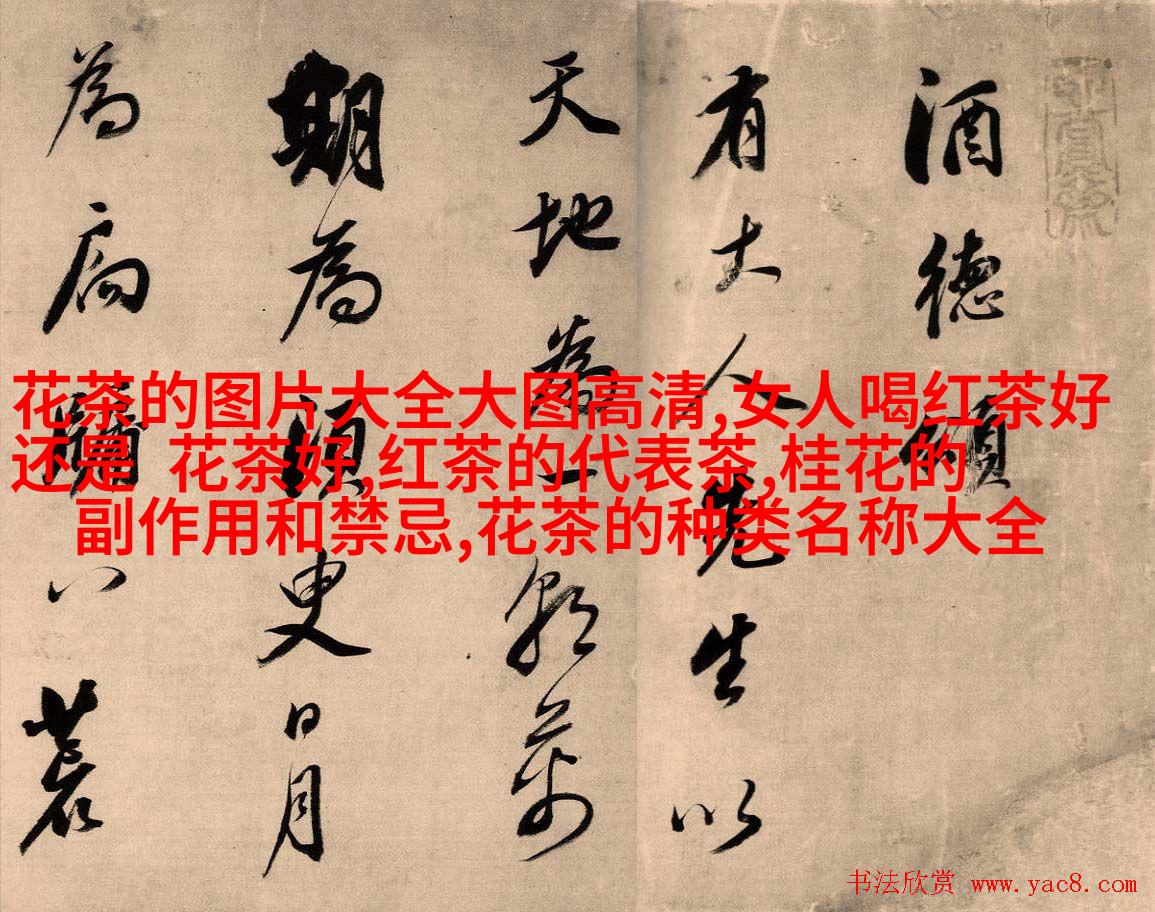 酒德頌
有大人先生以
天地為一朝萬
期為須臾日月
為扃牖八荒
花茶的图片大全大图高清,女人喝红茶好
还是 花茶好,红茶的代表茶,桂花的
副作用和禁忌,花茶的种类名称大全
书法欣赏 www.yac8.com